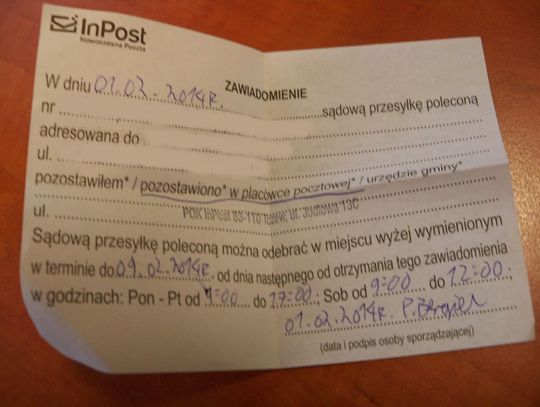 InPost
Nowoczesna Poczta
ZAWIADOMIENIE
W dniu 01.02.2014r. sądową przesyłkę poleconą
nr
adresowana do
ul.
pozostawiłem* / pozostawiono* w placówce pocztowej* / urzędzie gminy*
ul. POK InPost 83-110 Tczew, ul. 13C
Sądową przesyłkę poleconą można odebrać w miejscu wyżej wymienionym
w terminie do 09.02.2014r. od dnia następnego od otrzymania tego zawiadomienia
w godzinach: Pon - Pt od 9:00 do 17:00; Sob od 9:00 do 12:00;
01.02.2014r. P.
(data i podpis osoby sporządzającej)